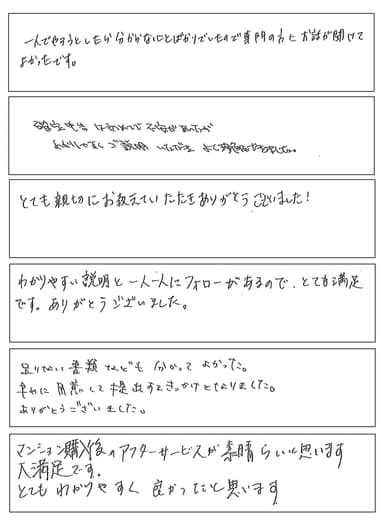 一人でやろうとしたら分からないことばかりでしたので専門の方にお話が聞けて
よかったです。
確定申告は初めてで不安があったが
わかりやすくご説明いただき よく理解できました。
とても親切にお教えていただきありがとうございました！
わかりやすい説明と一人一人にフォローがあるので、とても満足
です。ありがとうございました。
足りない書類なども分かってよかった。
早めに用意して提出するきっかけとなりました。
ありがとうございました。
マンション購入後のアフターサービスが素晴らしいと思います
大満足です。
とてもわかりやすく良かったと思います